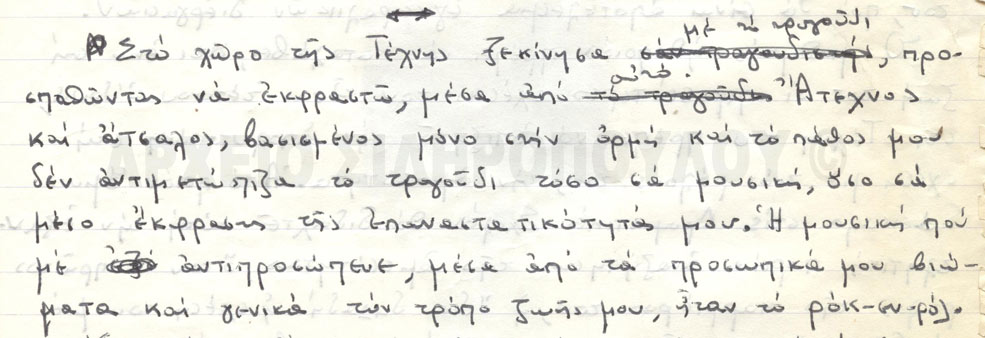 μέ τό τραγούδι
Στό χῶρο τῆς Τέχνης ξεκίνησα σάν τραγουδιστής, προ-
αὐτό.
σπαθῶντας νά ἐκφραστῶ, μέσα ἀπό τό τραγοῦδι Ἄτεχνος
καί ἄτσαλος, βασισμένος μόνο στήν ὁρμή καί τό πάθος μου
δέν ἀντιμετώπιζα τό τραγοῦδι τόσο σά μουσική, ὅσο σά
μέσο ἔκφρασης τῆς ἐπαναστατικότητάς μου. Ἡ μουσική πού
μέ ἀντιπροσώπευε, μέσα ἀπό τά προσωπικά μου βιώ-
ματα καί γενικά τόν τρόπο ζωῆς μου, ἦταν τό ρόκ-εν-ρόλ.
ΑΡΧΕΙΟ ΣΙΔΗΡΟΠΟΥΛΟΥ ©